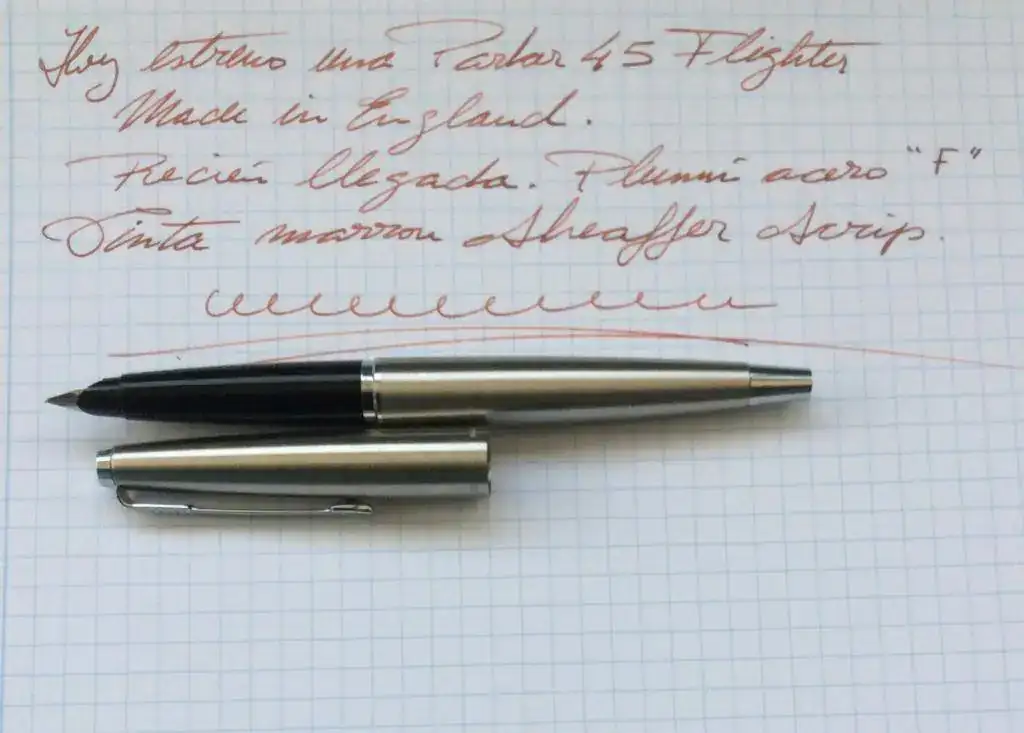 Hoy estreno una Parker 45 Flighter
Made in England.
Recién llegada. Plumín acero "F"
Tinta marron Sheaffer Scrip.